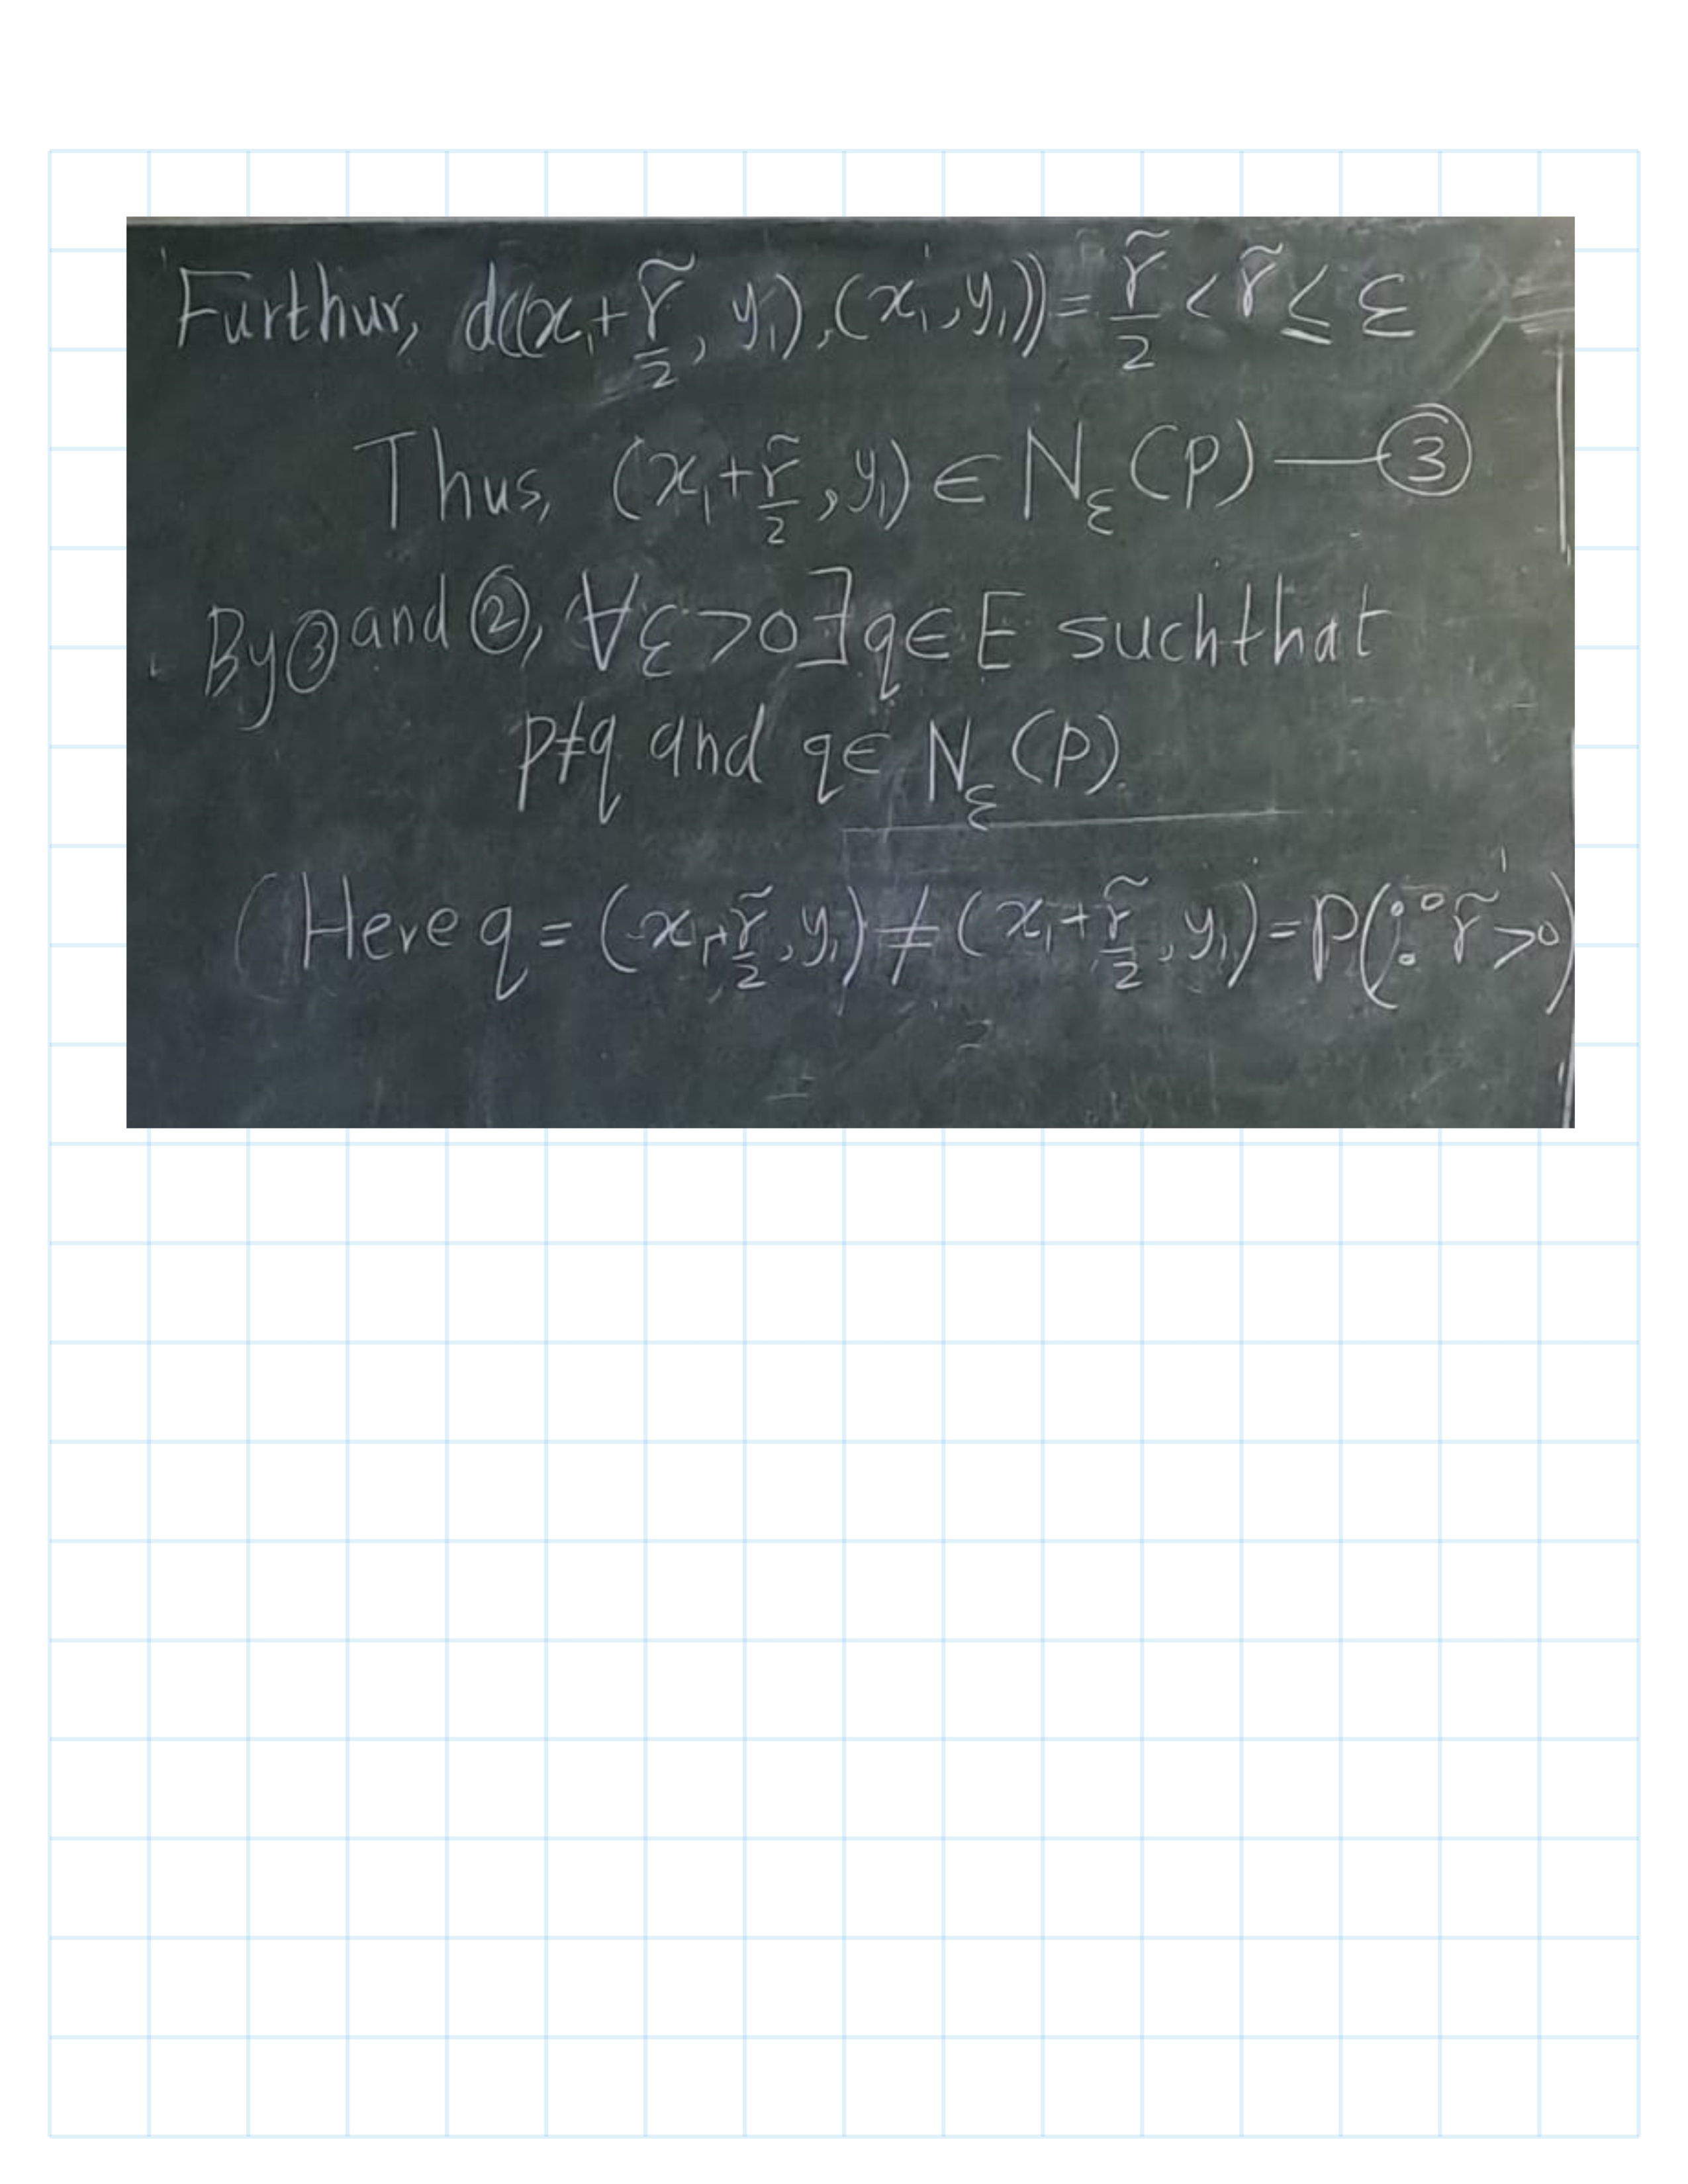 Furthur, d((x₁+r̃/2, y₁), (x₁, y₁)) = r̃/2 < r̃ ≤ ε
Thus, (x₁+r̃/2, y₁) ∈ N_ε(p) — ③
By ③ and ②, ∀ε>0 ∃ q∈E such that
p≠q and q∈ N_ε(p).
(Here q = (x₁+r̃/2, y₁) ≠ (x₁+r̃/2, y₁) = p (∵ r̃>0)